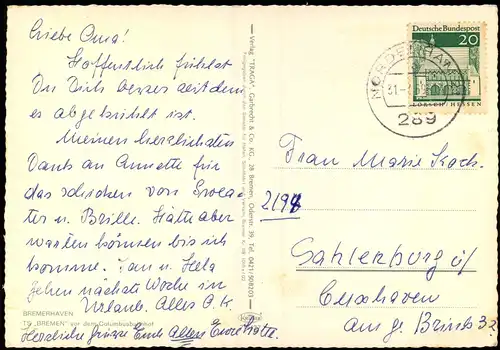 Liebe Oma!
Hoffentlich fühlst
Du Dich besser seitdem
es abgekühlt ist.
Meinen herzlichsten
Dank an Annette für
das schicken von
u. Brille. Hätte aber
warten können bis ich
komme. u.
gehen nächste Woche in
Urlaub. Alles O.K.
BREMERHAVEN
TS „BREMEN" vor dem Columbusbahnhof
Herzliche Grüsse Euch Allen Eure
Verlag "TRAGA", & Co. KG., 28 Bremen, Tel.
Deutsche Bundespost
20
LORSCH / HESSEN
NORDENHAM
31.-
289
Frau Marie Koch
2194
Sahlenburg ü/
Cuxhaven
am gr. Brink 32